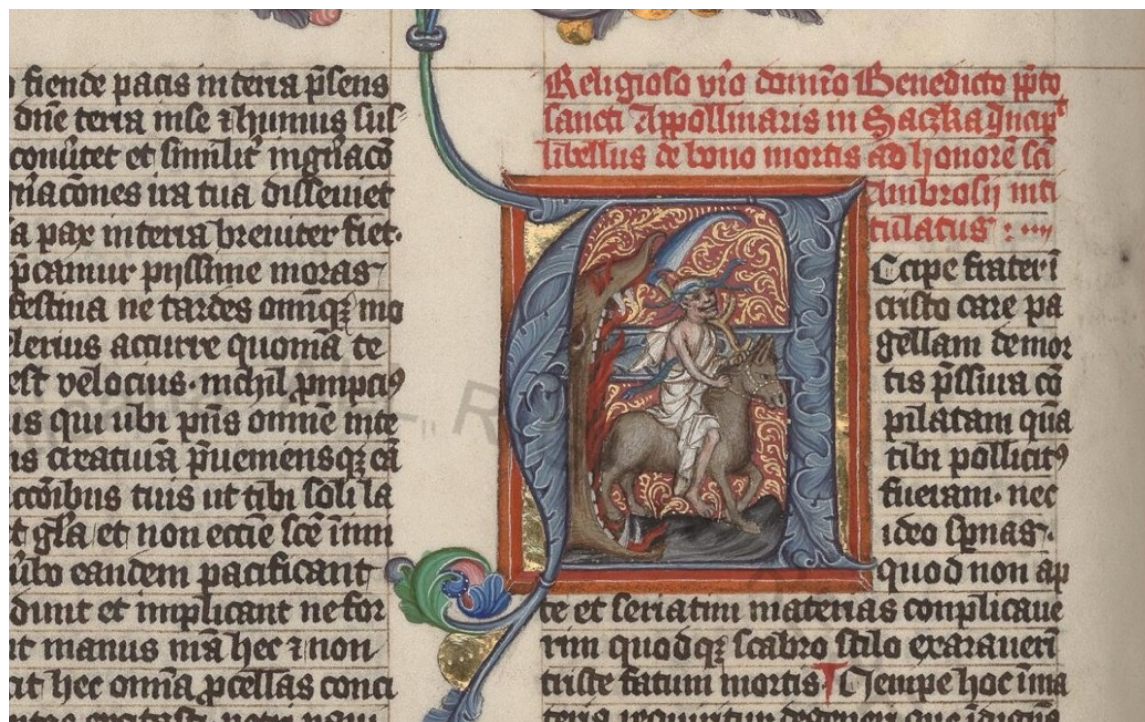 fiende pacis in terra p̄sens
dn̄e terra ip̄se ⁊ humus sus
conūtet et similit᷑ ingr̄acō
gn̄acōnes ira tua disseuiet
a pax in terra breuiter fiet·
p̄camur pijssime moras
festina ne tardes om̄iqꝫ mo
lerius accurre quoniā te
est velocius· nichil ꝓmpciꝰ
is qui ubi p̄ns omnē inte
is creatiuā p̄ueniensqꝫ eā
ccōibus tuis ut tibi soli la
t gl̄a et non ecc̄ie sc̄e inmi
eandem pacificant
dunt et implicant ne for
it manus m̄a hec ⁊ non
cit hec om̄ia ꝓcellas conci
Religioso vir̄o domi͞o Benedicto p̄pto
sancti Appollinaris in Saczka Incip̄t
libellus de bono mortis ad honorē sc̄i
Ambrosij inti
tulatus :
Ccipe frater ī
cristo care pa
gellam de mor
tis p̄ssura cō
pilatam quā
tibi pollicitꝰ
fueram· nec
ideo sp̄nas·
quod non ap
te et seriatim materias conplicaue
rim quodqꝫ scabro stilo exarauerī
triste fatum mortis Nempe hoc ī ma